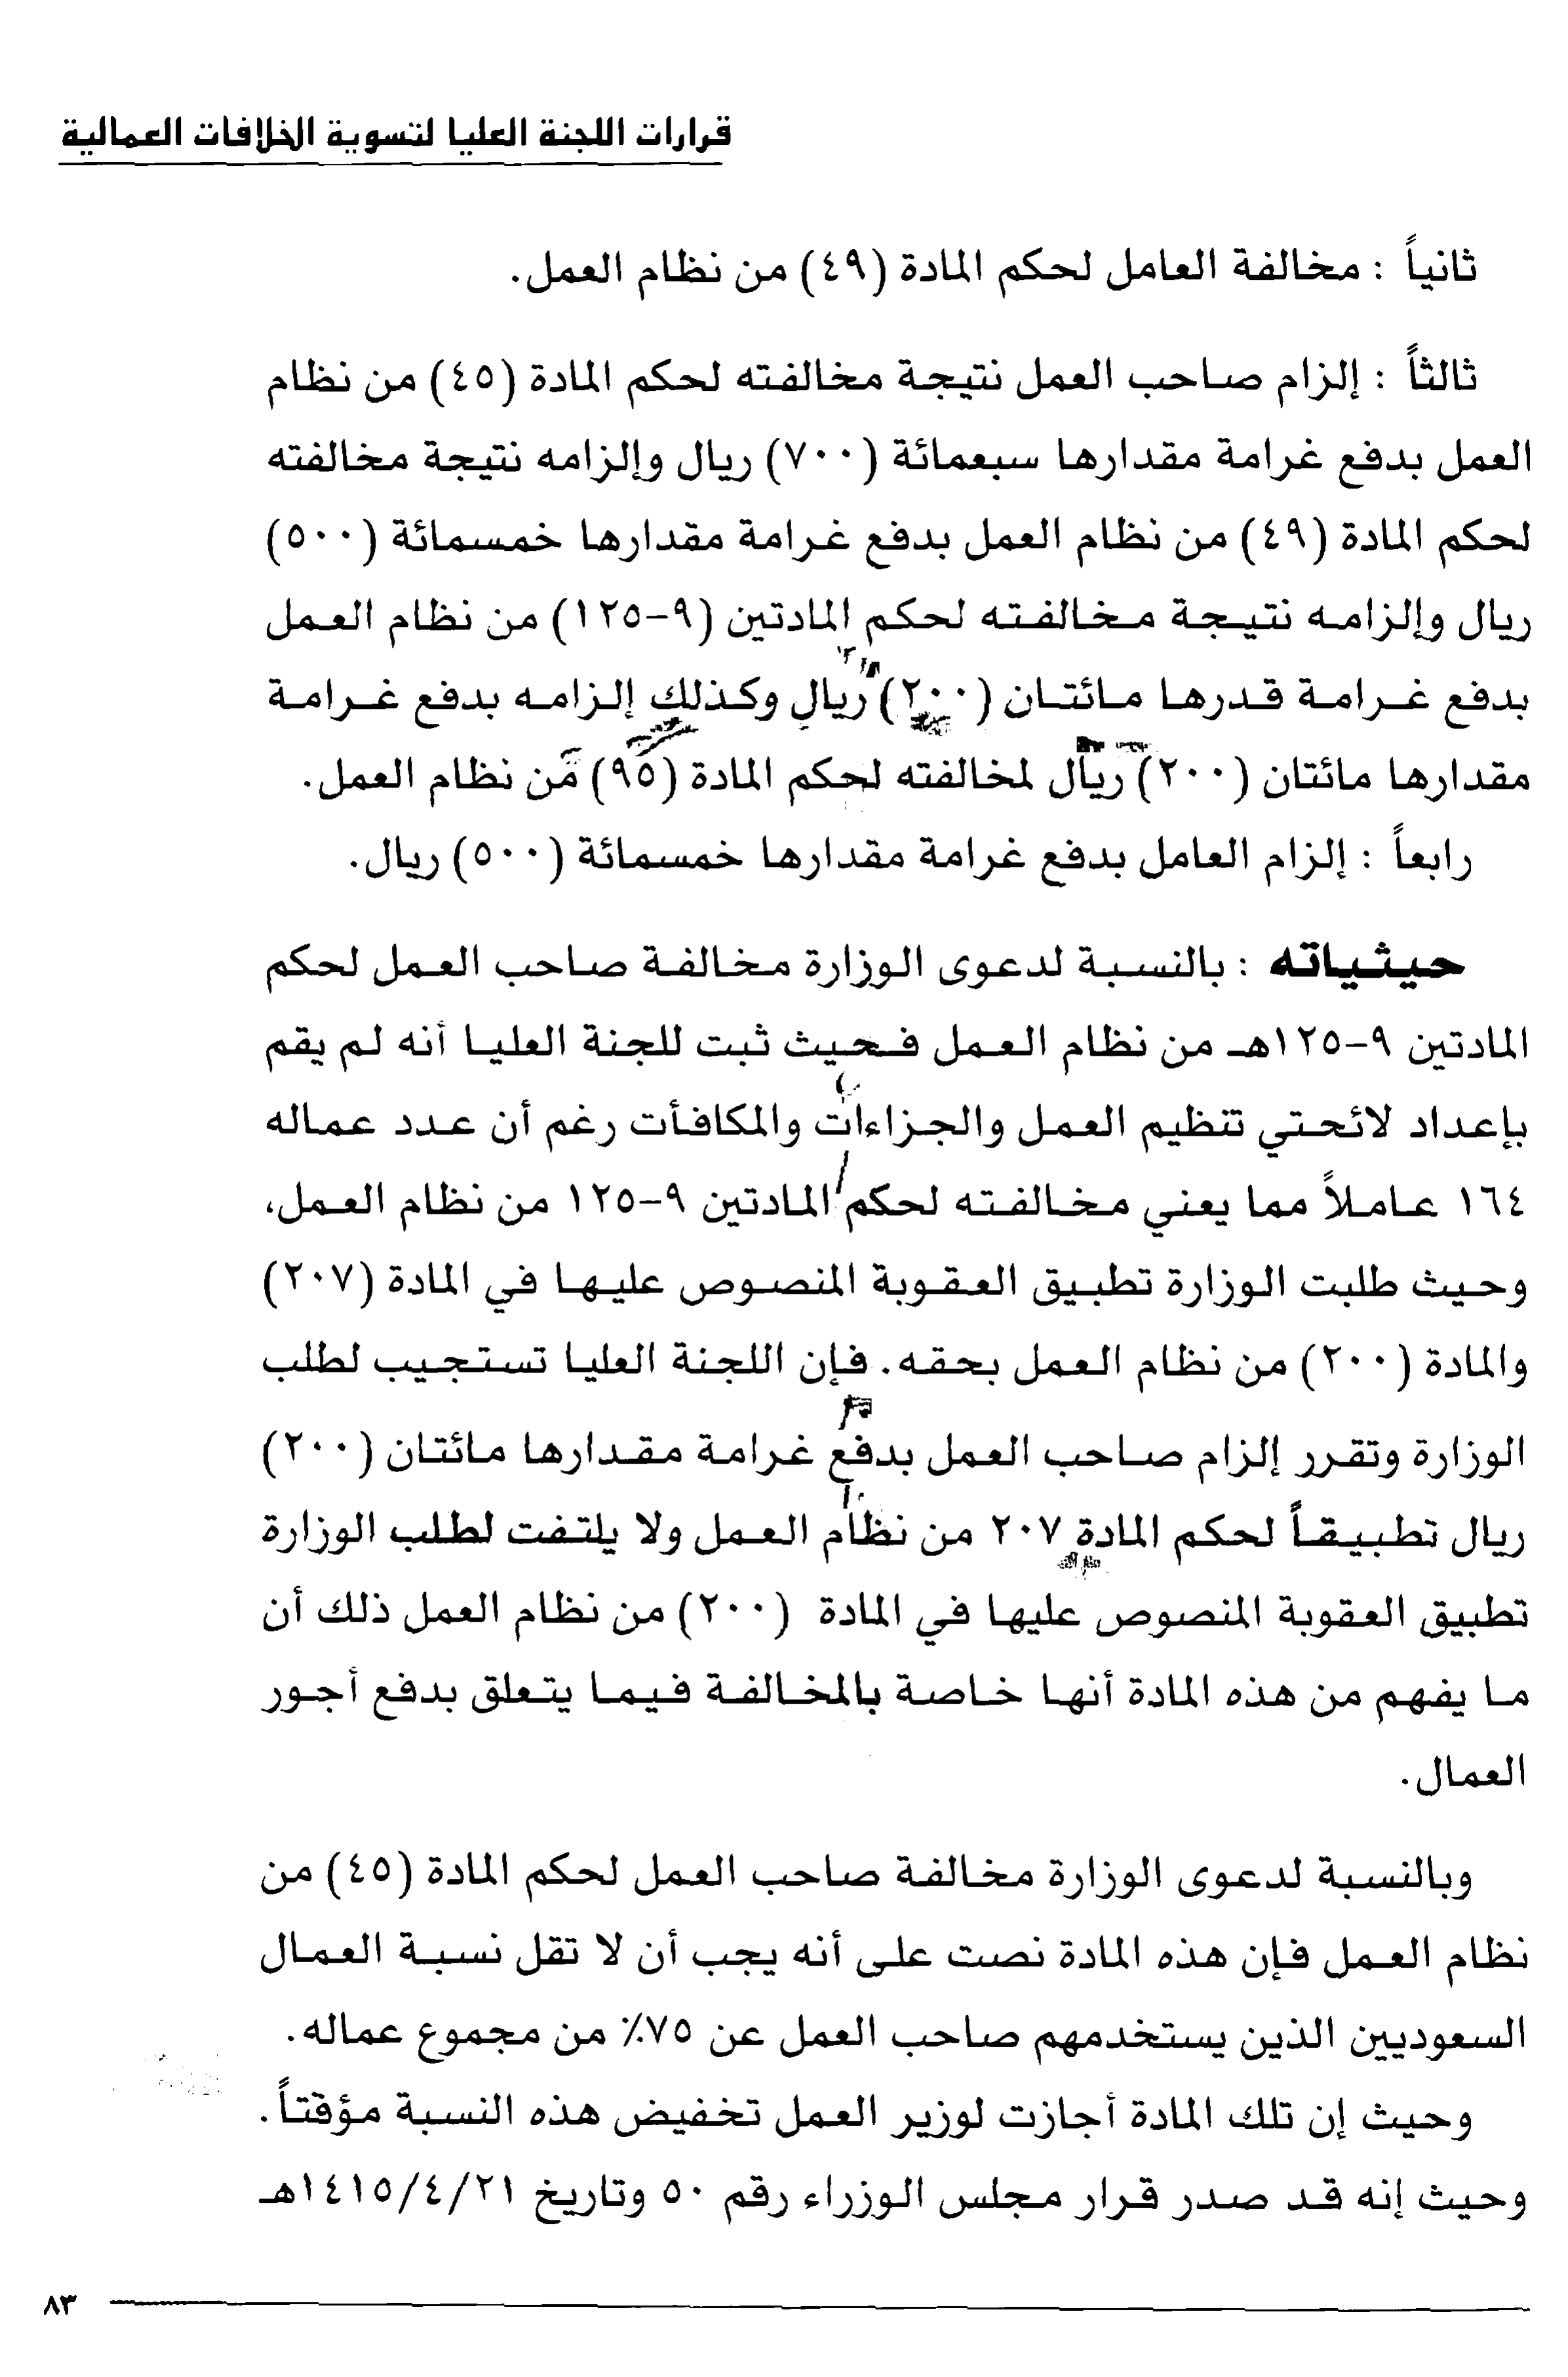 قرارات اللجنة العليا لتسوية الخلافات العمالية
ثانياً : مخالفة العامل لحكم المادة (٤٩) من نظام العمل.
ثالثاً : إلزام صاحب العمل نتيجة مخالفته لحكم المادة (٤٥) من نظام
العمل بدفع غرامة مقدارها سبعمائة (٧٠٠) ريال وإلزامه نتيجة مخالفته
لحكم المادة (٤٩) من نظام العمل بدفع غرامة مقدارها خمسمائة (٥٠٠)
ريال وإلزامه نتيجة مخالفته لحكم المادتين (٩-١٢٥) من نظام العمل
بدفع غرامة قدرها مائتان (٢٠٠) ريال وكذلك إلزامه بدفع غرامة
مقدارها مائتان (٢٠٠) ريال لمخالفته لحكم المادة (٩٥) من نظام العمل.
رابعاً : إلزام العامل بدفع غرامة مقدارها خمسمائة (٥٠٠) ريال.
حيثياته : بالنسبة لدعوى الوزارة مخالفة صاحب العمل لحكم
المادتين ٩-١٢٥هـ من نظام العمل فحيث ثبت للجنة العليا أنه لم يقم
بإعداد لائحتي تنظيم العمل والجزاءات والمكافأت رغم أن عدد عماله
١٦٤ عاملاً مما يعني مخالفته لحكم المادتين ٩-١٢٥ من نظام العمل،
وحيث طلبت الوزارة تطبيق العقوبة المنصوص عليها في المادة (٢٠٧)
والمادة (٢٠٠) من نظام العمل بحقه. فإن اللجنة العليا تستجيب لطلب
الوزارة وتقرر إلزام صاحب العمل بدفع غرامة مقدارها مائتان (٢٠٠)
ريال تطبيقاً لحكم المادة ٢٠٧ من نظام العمل ولا يلتفت لطلب الوزارة
تطبيق العقوبة المنصوص عليها في المادة (٢٠٠) من نظام العمل ذلك أن
ما يفهم من هذه المادة أنها خاصة بالمخالفة فيما يتعلق بدفع أجور
العمال.
وبالنسبة لدعوى الوزارة مخالفة صاحب العمل لحكم المادة (٤٥) من
نظام العمل فإن هذه المادة نصت على أنه يجب أن لا تقل نسبة العمال
السعوديين الذين يستخدمهم صاحب العمل عن ٧٥٪ من مجموع عماله.
وحيث إن تلك المادة أجازت لوزير العمل تخفيض هذه النسبة مؤقتاً.
وحيث إنه قد صدر قرار مجلس الوزراء رقم ٥٠ وتاريخ ١٤١٥/٤/٢١هـ
٨٣